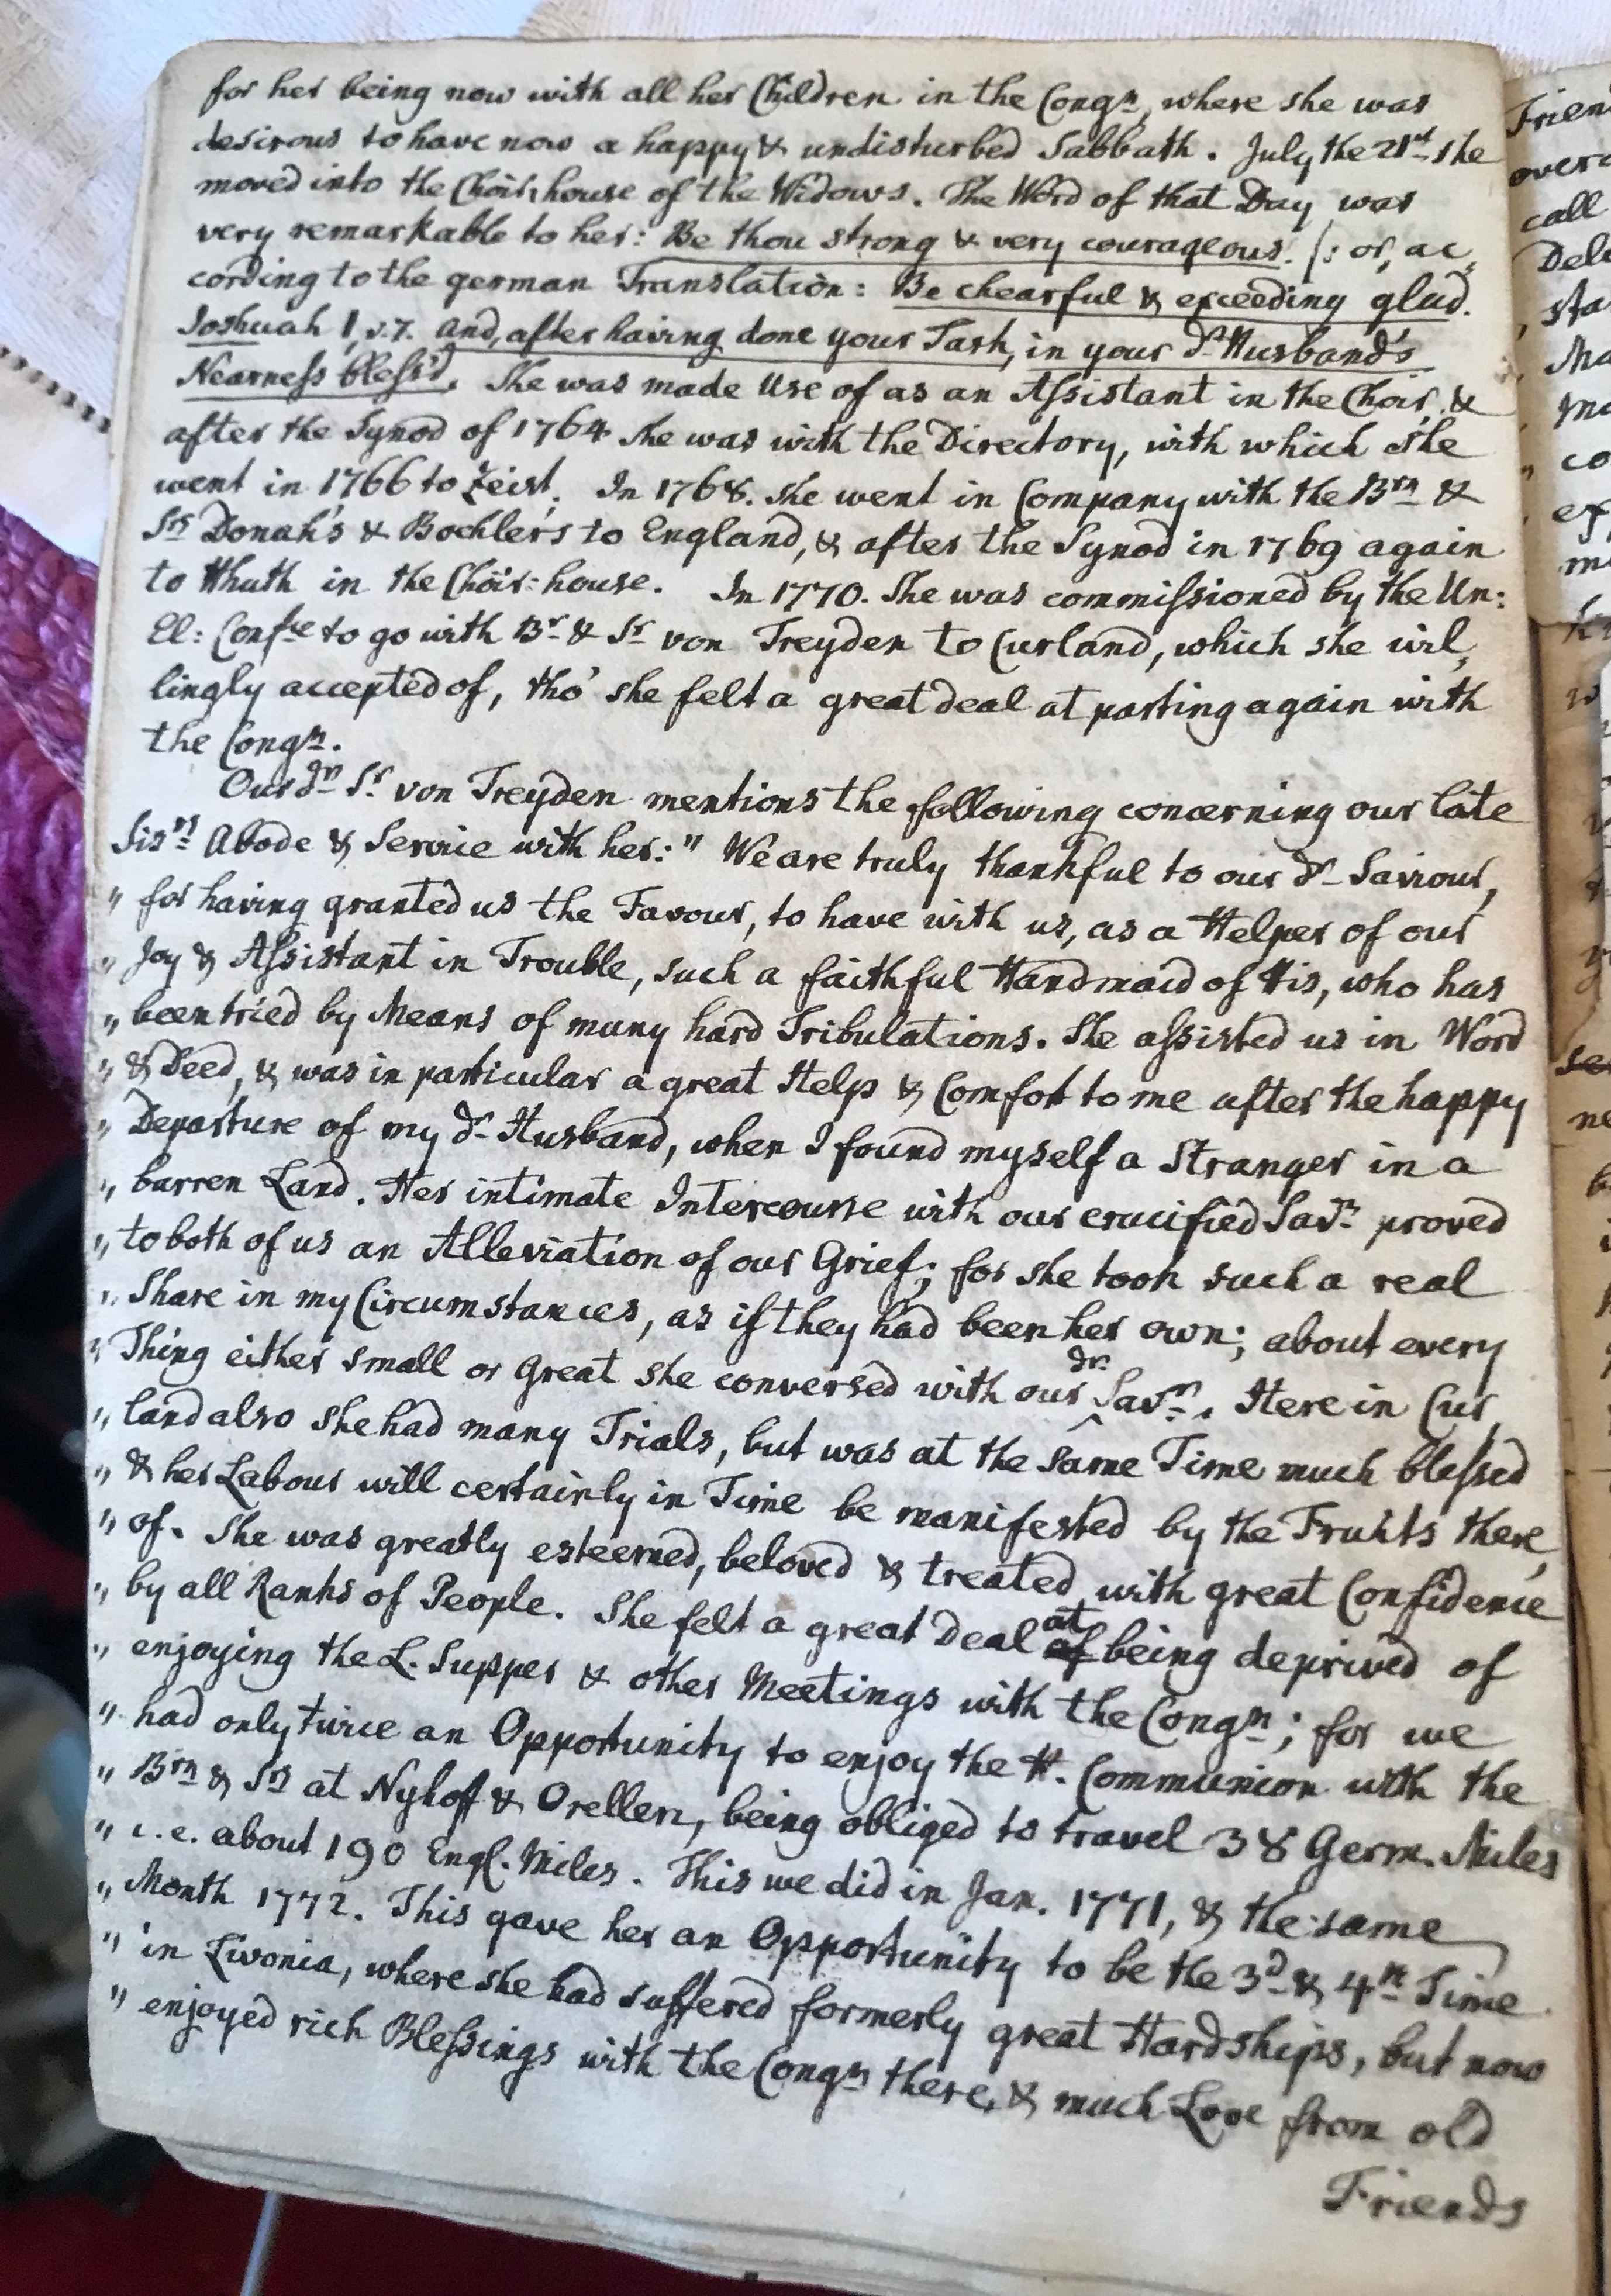 for her being now with all her Children in the Congn, where she was
desirous to have now a happy & undisturbed Sabbath. July the 21st she
moved into the Choir house of the Widows. The Word of that Day was
very remarkable to her: Be thou strong & very courageous. /: or, ac,
cording to the german Translation: Be chearful & exceeding glad.
Joshuah 1, v. 7. and, after having done your Task, in your dr Husband's
Nearness bless'd. She was made Use of as an Assistant in the Choir, &
after the Synod of 1764 she was with the Directory, with which she
went in 1766 to Zeist. In 1768. she went in Company with the Brn &
Srs Donah's & Boehlers to England, & after the Synod in 1769 again
to Hhuth in the Choir-house. In 1770. She was commissioned by the Un:
El: Confce to go with Br & Sr von Treyden to Curland, which she wil,
lingly accepted of, tho' she felt a great deal at parting again with
the Congn.
Our dr Sr von Treyden mentions the following concerning our late
Sisrs Abode & Service with her: " We are truly thankful to our dr Saviour,
" for having granted us the Favour, to have with us, as a Helper of our
" Joy & Assistant in Trouble, such a faithful Handmaid of His, who has
" been tried by Means of many hard Tribulations. She assisted us in Word
" & Deed, & was in particular a great Help & Comfort to me after the happy
" Departure of my dr Husband, when I found myself a Stranger in a
" barren Land. Her intimate Intercourse with our crucified Savr proved
" to both of us an Alleviation of our Grief; for she took such a real
" Share in my Circumstances, as if they had been her own; about every
" Thing either small or Great she conversed with our dr Savr. Here in Cur,
" land also she had many Trials, but was at the same Time much blessed
" & her Labour will certainly in Time be manifested by the Fruits there,
" of. She was greatly esteemed, beloved & treated with great Confidence
" by all Ranks of People. She felt a great Deal at being deprived of
" enjoying the L. Supper & other Meetings with the Congn; for we
" had only twice an Opportunity to enjoy the H. Communion with the
" Brn & Srs at Nyhof & Orellen, being obliged to travel 38 Germ. Miles
" i.e. about 190 Engl. Miles. This we did in Jan. 1771, & the same
" Month 1772. This gave her an Opportunity to be the 3d & 4th Time
" in Livonia, where she had suffered formerly great Hardships, but now
" enjoyed rich Blessings with the Congn there, & much Love from old
Friends